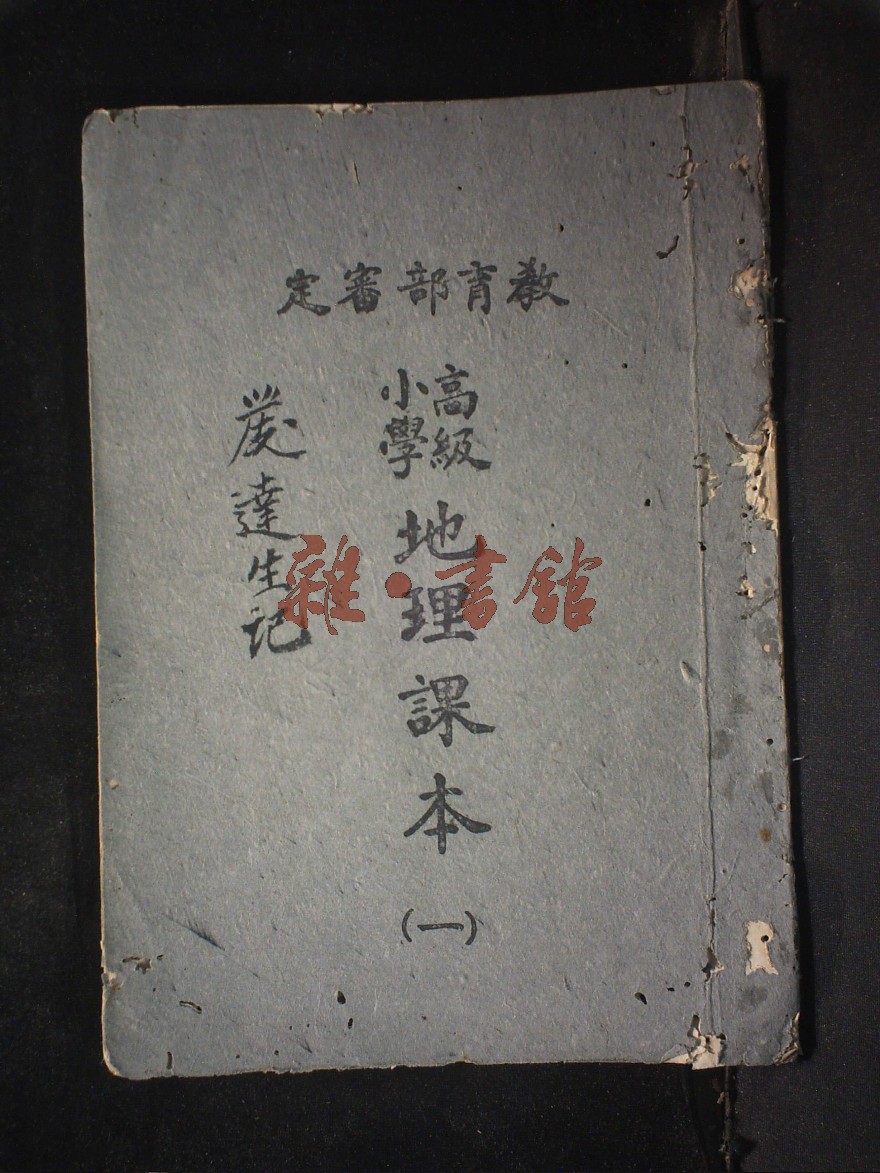 教育部審定
高級
小學
地理課本
(一)
達生記
雜·書館